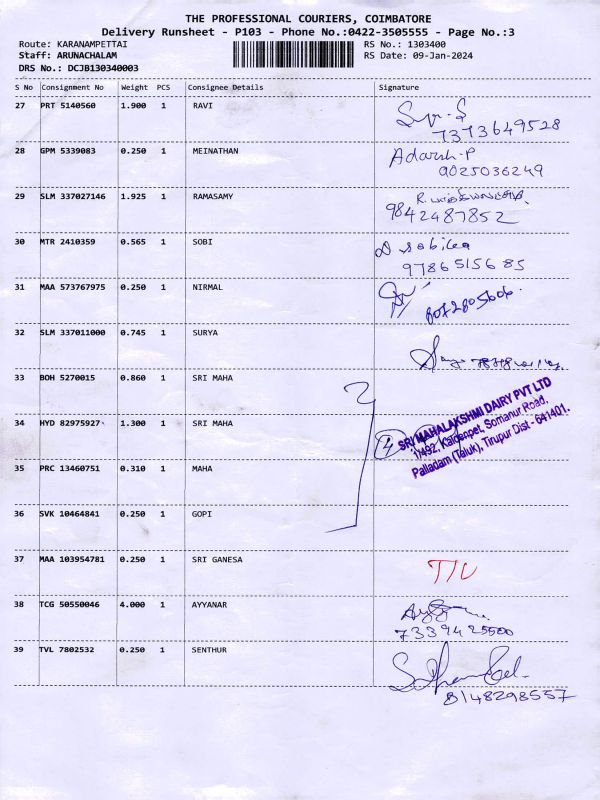 THE PROFESSIONAL COURIERS, COIMBATORE
Delivery Runsheet - P103 - Phone No.:0422-3505555 - Page No.:3
Route: KARANAMPETTAI RS No.: 1303400
Staff: ARUNACHALAM RS Date: 09-Jan-2024
DRS No.: DCJB130340003
S No Consignment No Weight PCS Consignee Details Signature
27 PRT 5140560 1.900 1 RAVI
7373649528
28 GPM 5339083 0.250 1 MEINATHAN Adarsh-P
9025036249
29 SLM 337027146 1.925 1 RAMASAMY R.
9842487852
30 MTR 2410359 0.565 1 SOBI D sobilea
9786515685
31 MAA 573767975 0.250 1 NIRMAL
8072805606
32 SLM 337011000 0.745 1 SURYA
33 BOH 5270015 0.860 1 SRI MAHA
34 HYD 82975927 1.300 1 SRI MAHA
4 SRI MAHALAKSHMI DAIRY PVT LTD
1/492, Somanur Road,
Palladam (Taluk), Tirupur Dist - 641401.
35 PRC 13460751 0.310 1 MAHA
36 SVK 10464841 0.250 1 GOPI
37 MAA 103954781 0.250 1 SRI GANESA
38 TCG 50550046 4.000 1 AYYANAR
7339425500
39 TVL 7802532 0.250 1 SENTHUR
8148298557